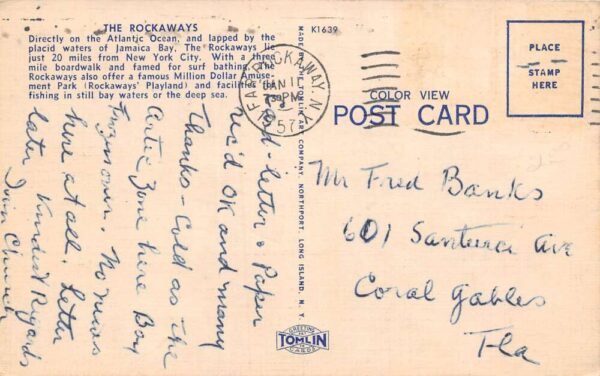 THE ROCKAWAYS
Directly on the Atlantic Ocean, and lapped by the
placid waters of Jamaica Bay, The Rockaways lie
just 20 miles from New York City. With a three
mile boardwalk and famed for surf bathing, The
Rockaways also offer a famous Million Dollar Amuse-
ment Park (Rockaways' Playland) and facilities for
fishing in still bay waters or the deep sea.
Card - letter & Paper
rec'd OK and many
Thanks - Cold as the
Artic Zone here Bay
frozen over. No news
here at all. Letter
later Kindest Regards
MADE BY THE TOMLIN ART COMPANY, NORTHPORT, LONG ISLAND, N. Y.
K1639
FAR ROCKAWAY, N.Y.
JAN 11
PM
1957
COLOR VIEW
POST CARD
PLACE
STAMP
HERE
Mr Fred Banks
601 Ave
Coral Gables
Fla
GREETING
TOMLIN
CARDS